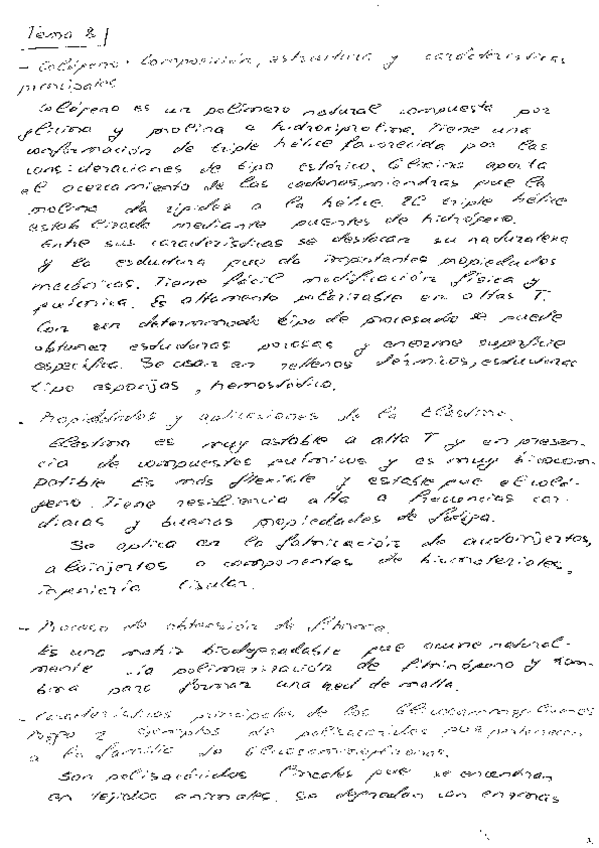 Tema 8
- Colágeno: Composición, estructura y características
principales
Colágeno es un polímero natural compuesto por
glicina y prolina o hidroxiprolina. Tiene una
conformación de triple hélice favorecida por las
consideraciones de tipo estérico. Glicina aporta
el acercamiento de las cadenas, miendras que la
prolina da rigidez a la hélice. El triple hélice
estabilizada mediante puentes de hidrógeno.
Entre sus características se destacan su naturaleza
y la estructura que da importantes propiedades
mecánicas. Tiene fácil modificación física y
química. Es altamente polarizable en altas T.
Con un determinado tipo de procesado se puede
obtener estructuras porosas y enorme superficie
específica. Se usan en rellenos dérmicos, estructuras
tipo esponjas, hemostático.
- Propiedades y aplicaciones de la Elastina.
Elastina es muy estable a alta T y en presen-
cia de compuestos químicos y es muy biocom-
patible. Es más flexible y estable que el colá-
geno. Tiene resiliencia alta a frecuencias car-
diacas y buenas propiedades de fatiga.
Se aplica en la fabricación de autoinjertos,
aloinjertos o componentes de biomateriales,
ingeniería tisular.
- Proceso de obtención de fibrina.
Es una matriz biodegradable que ocurre natural-
mente vía polimerización de fibrinógeno y trom-
bina para formar una red de malla.
- Características principales de los Glucosaminoglicanos
2 ejemplos de polisacáridos que pertenecen
a la familia de Glucosaminoglicanos.
Son polisacáridos lineales que se encuentran
en tejidos animales. Se degradan con enzimas